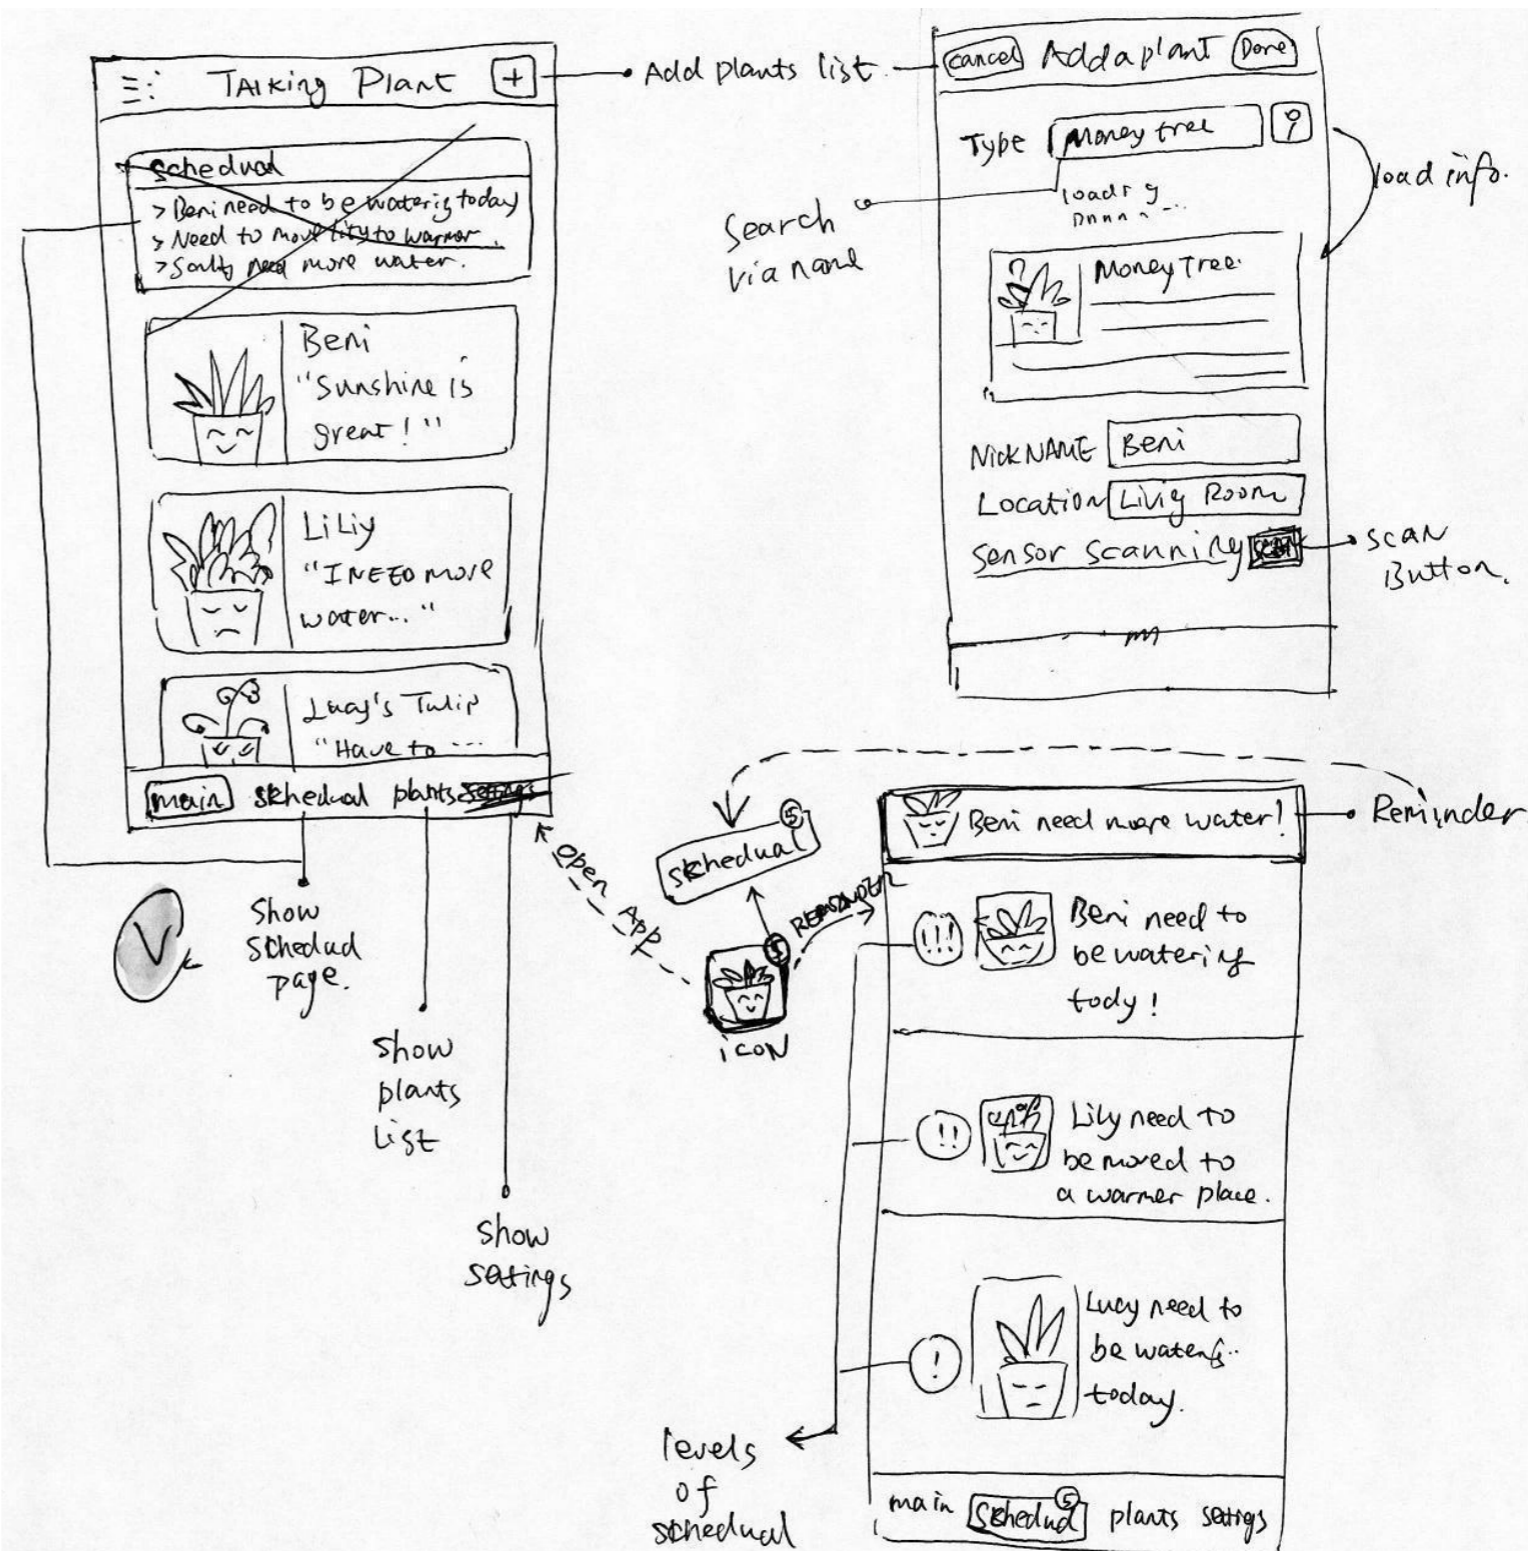 TALKing Plant +
schedual
> Beni need to be waterig today
> Need to move lily to warmer.
> need more water.
Beni
"Sunshine is
great! "
LiLiy
"I NEED more
water... "
Lucy's Tulip
"Have to ...
main skhedual plants settings
Show
skhedual
page.
V
show
plants
List
show
settings
Add plants list.
Cancel Add a plant Done
Type Money tree
load info.
Search
via name
Money Tree.
NickNAME Beni
Location Livig Room
Sensor scanning SCAN
SCAN
Button.
skhedual 5
OPEN APP
REMINDER
5
iCON
Beni need more water!
Reminder
!!! Beni need to
be watering
tody !
!! Lily need to
be moved to
a warmer place.
! Lucy need to
be
today.
levels
of
skhedual
main skhedual 5 plants settings